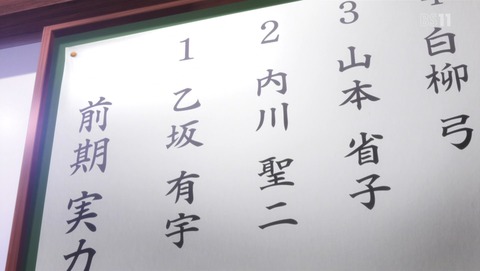 前期 実力
1 乙坂 有宇
2 内川 聖二
3 山本 省子
4 白柳 弓
BS11